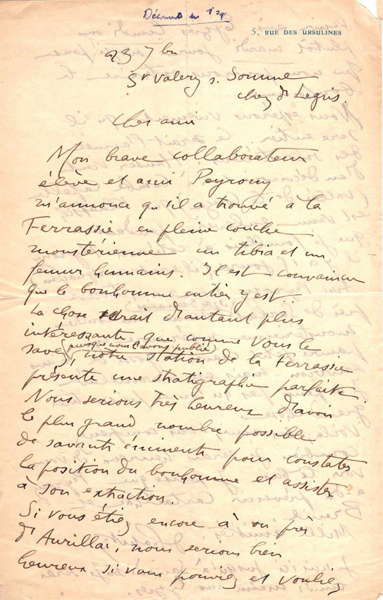 5, RUE DES URSULINES
23 7bre
St Valery s. Somme
chez Mr Legris.
Cher ami
Mon brave collaborateur
élève et ami Peyrony
m'annonce qu'il a trouvé à la
Ferrassie en pleine couche
moustérienne un tibia et un
femur humains. Il est convaincu
que le bonhomme entier y est.
La chose serait d'autant plus
intéressante que comme vous le
savez (puisque nous l'avons publié) notre station de la Ferrassie
présente une stratigraphie parfaite.
Nous serions très heureux d'avoir
le plus grand nombre possible
de savants éminents pour constater
la position du bonhomme et assister
à son extraction.
Si vous étiez encore à ou près
d'Aurillac, nous serions bien
heureux si vous pouviez et vouliez